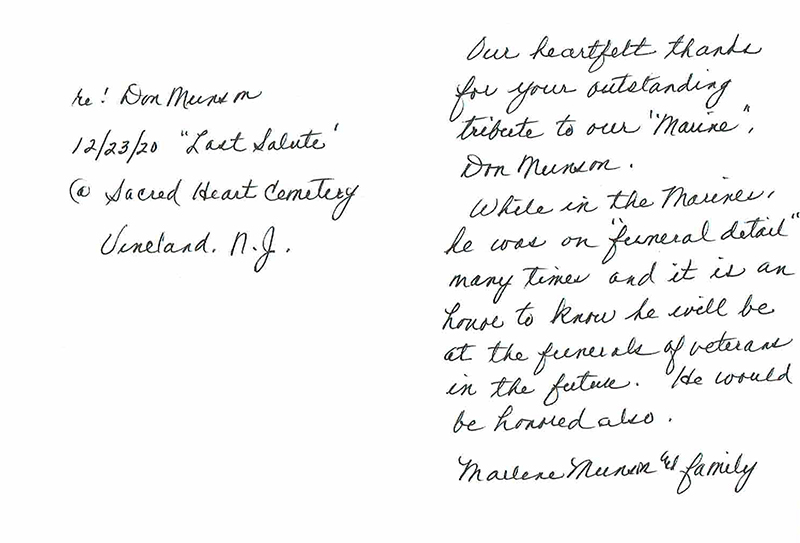 re: Don Munson
12/23/20 "Last Salute"
@ Sacred Heart Cemetery
Vineland, N.J.
Our heartfelt thanks
for your outstanding
tribute to our "Marine",
Don Munson.
While in the Marines,
he was on "funeral detail"
many times and it is an
honor to know he will be
at the funerals of veterans
in the future. He would
be honored also.
Marlene Munson & family